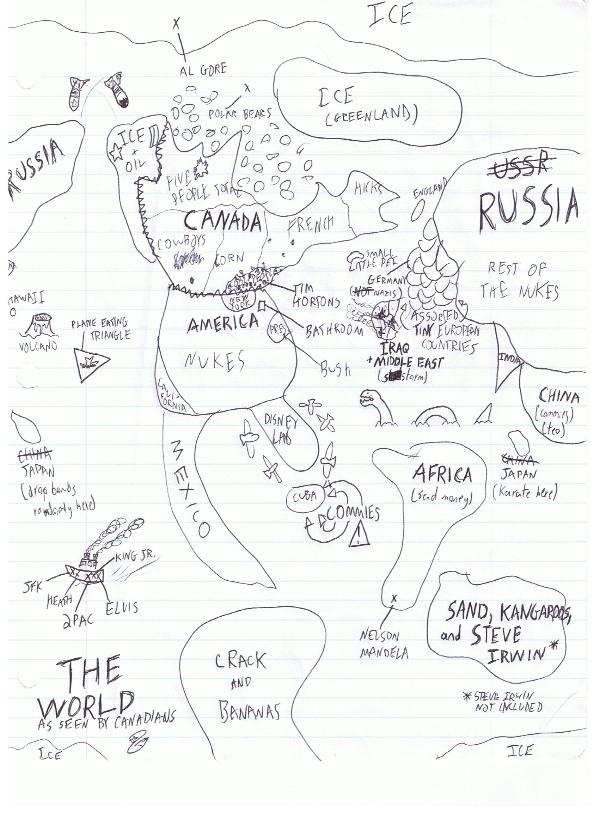 ICE
AL GORE
POLAR BEARS
ICE
(GREENLAND)
ICE
+
OIL
RUSSIA
FIVE
PEOPLE TOTAL
HICKS
ENGLAND
USSR
RUSSIA
CANADA
FRENCH
COWBOYS
CORN
SMALL
GERMANY
(NOT NAZIS)
REST OF
THE NUKES
HAWAII
VOLCANO
PLANE EATING
TRIANGLE
TIM
HORTONS
NEW
YORK
AMERICA
BATHROOM
ASSORTED
TINY EUROPEAN
COUNTRIES
IRAQ
+ MIDDLE EAST
NUKES
BUSH
INDIA
CALI-
FORNIA
CHINA
(commies)
(too)
DISNEY
LAND
MEXICO
CHINA
JAPAN
(drag bands
randomly here)
AFRICA
(send money)
CHINA
JAPAN
(Karate here)
CUBA
COMMIES
!
KING JR.
JFK
HEATH
2PAC
ELVIS
NELSON
MANDELA
SAND, KANGAROOS,
and STEVE
IRWIN *
* STEVE IRWIN
NOT INCLUDED
CRACK
AND
BANANAS
THE
WORLD
AS SEEN BY CANADIANS
ICE
ICE